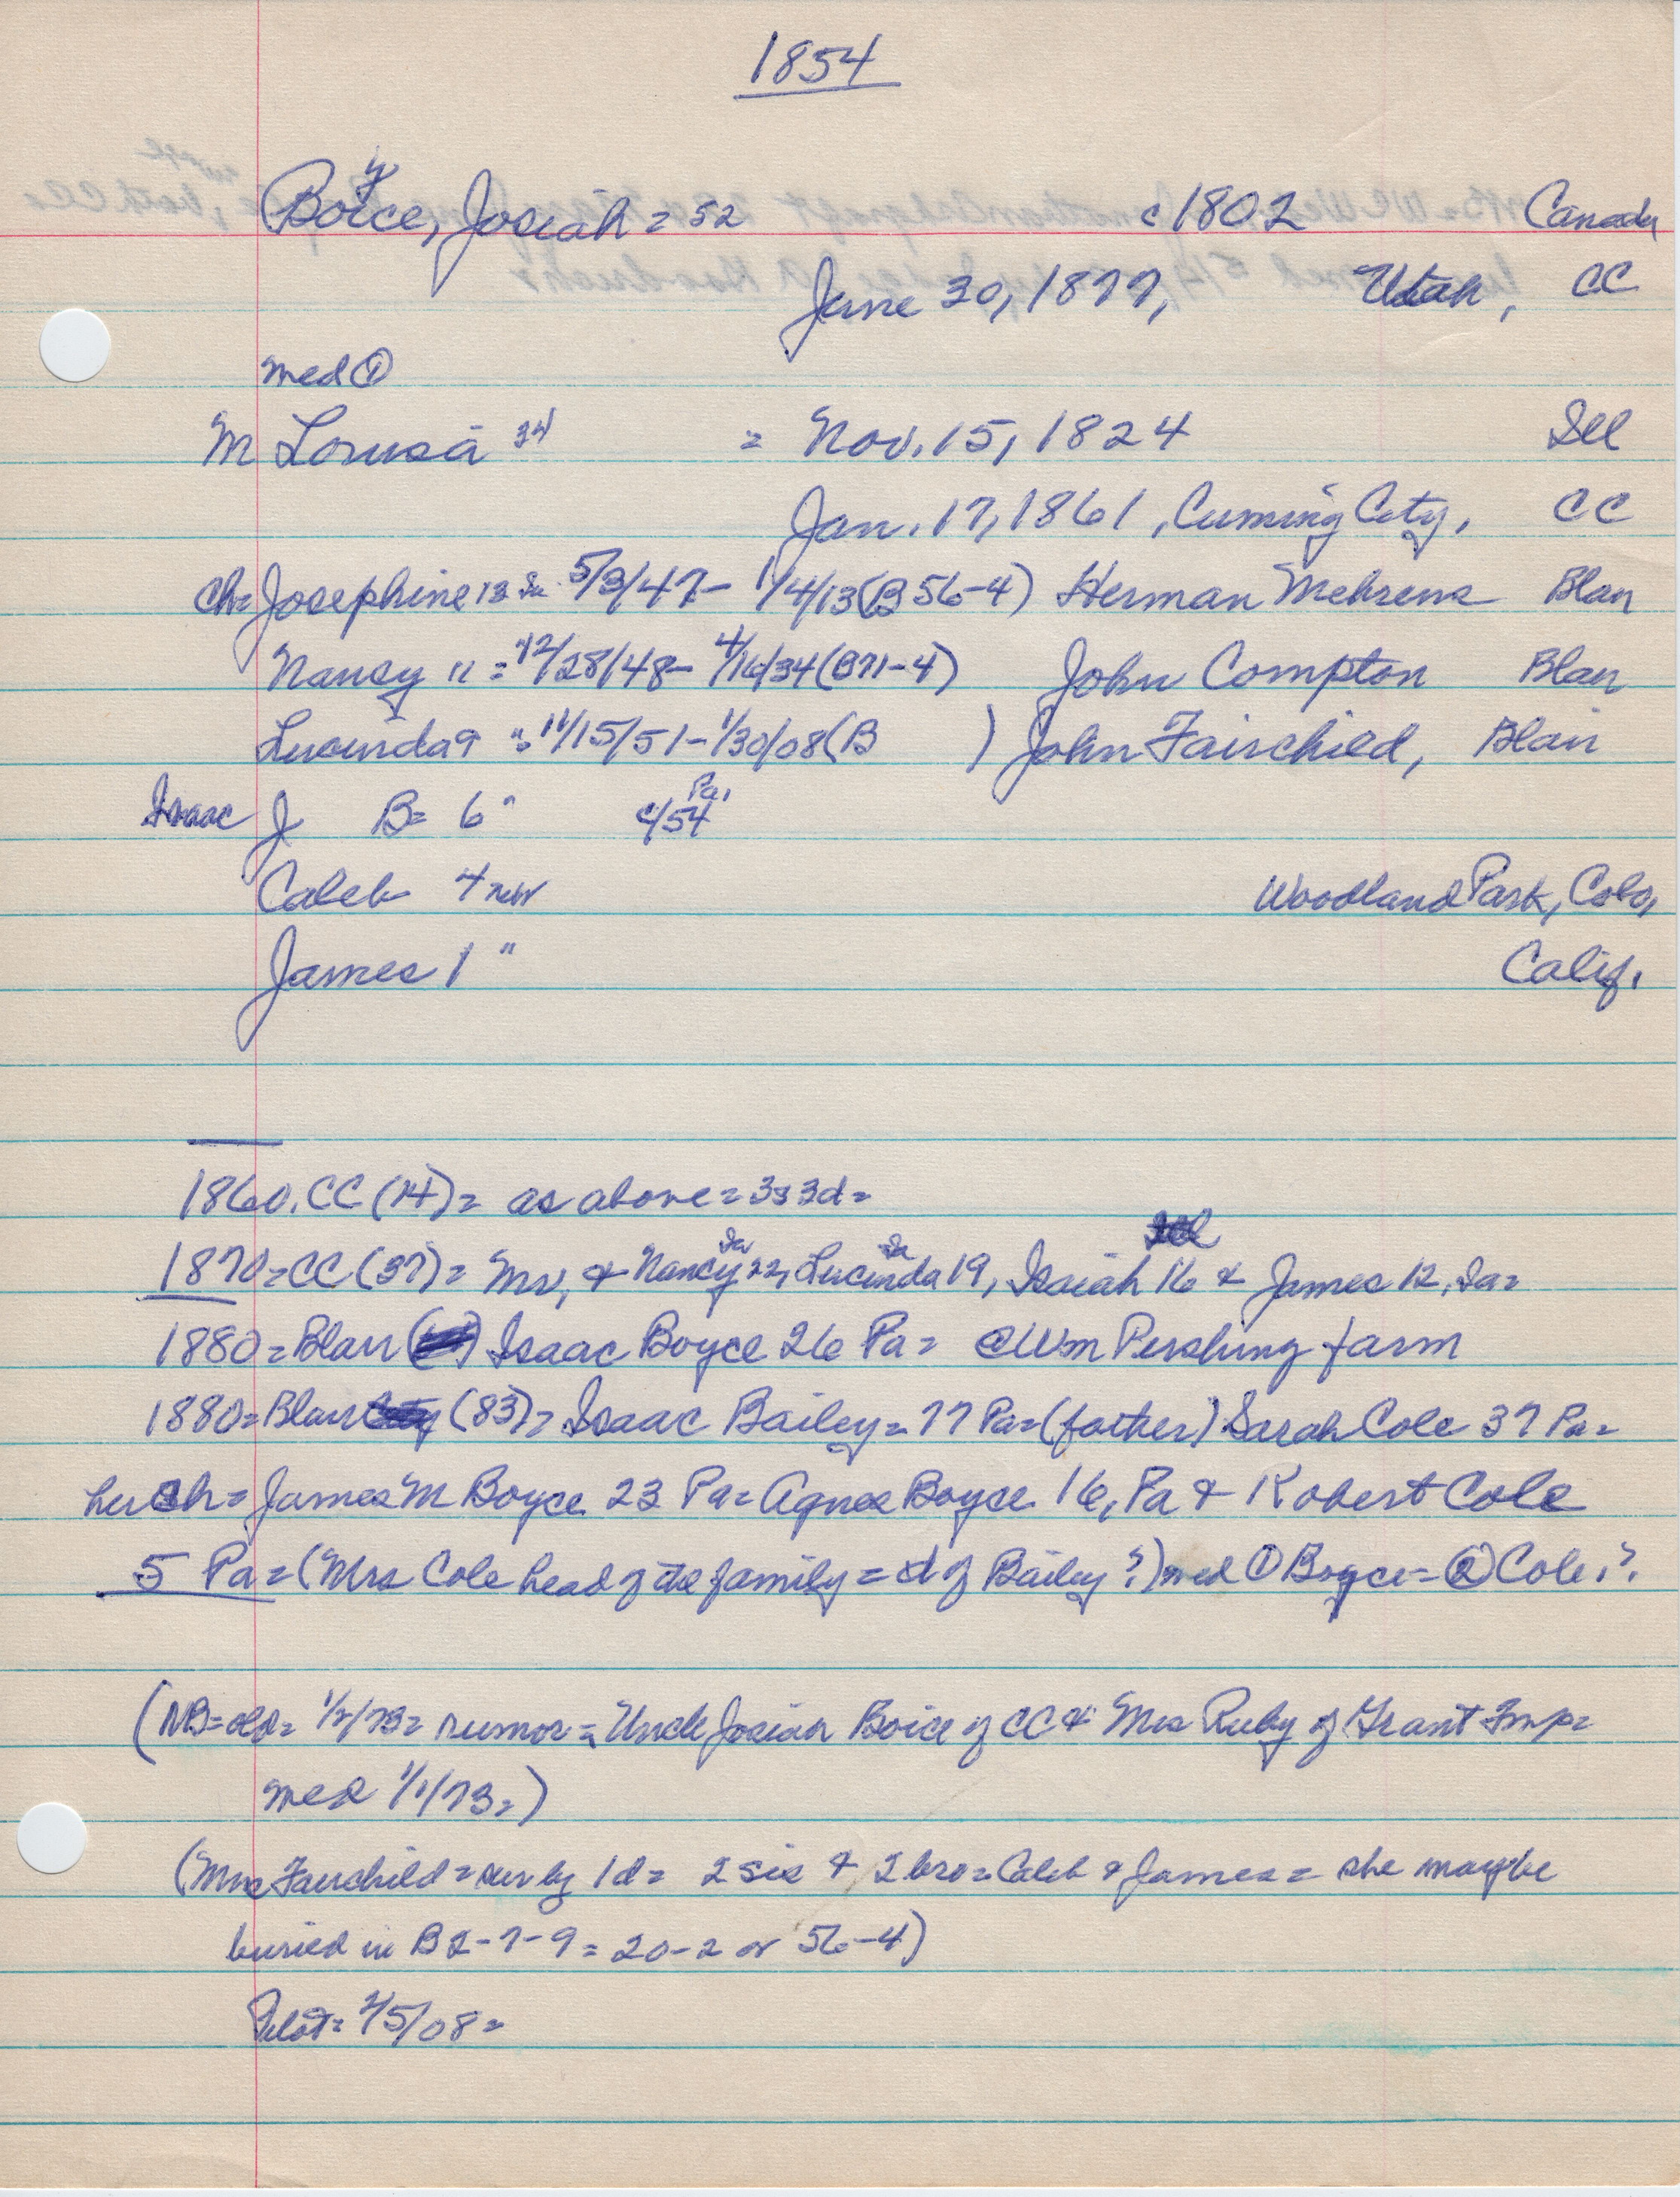 1854
y
Boice, Josiah = 52 c 1802 Canada
June 30, 1877, Utah, CC
med ①
M Lousa 34 = Nov. 15, 1824 Ill
Jan. 17, 1861, Cuming City, CC
Ch = Josephine 13 Ia. 5/3/47 - 1/4/13 (B 56-4) Herman Mehrens Blair
Nancy 11 = 12/28/48 - 4/16/34 (B71-4) John Compton Blair
Lucinda 9 " = 11/15/51 - 1/30/08 (B ) John Fairchild, Blair
Isaac J B = 6 " c/54 Pa,
Caleb 4 neb Woodland Park, Colo,
James 1 " Calif.
1860. CC (14) = as above = 3s 3d =
1870 = CC (37) = Mr, & Nancy Ia 22, Lucinda Ia 19, Isaiah 16 & James 12, Ia =
1880 = Blair Isaac Boyce 26 Pa = @ Wm Pershing farm
1880 = Blair (83) = Isaac Bailey = 77 Pa = (father) Sarah Cole 37 Pa =
her ch = James M Boyce 23 Pa = Agnes Boyce 16, Pa & Robert Cole
5 Pa = (Mrs Cole head of the family = d of Bailey?) med ① Boyce = ② Cole.?
(NB = old = 1/2/73 = rumor = Uncle Josiah Boice of CC & Mrs Ruby of Grant Twp =
med 1/1/73 = )
(Mrs Fairchild = sur by 1d = 2 sis & 2 bro = Caleb & James = she maybe
buried in B 2-7-9 = 20-2 or 56-4)
Pilot = 2/5/08 =